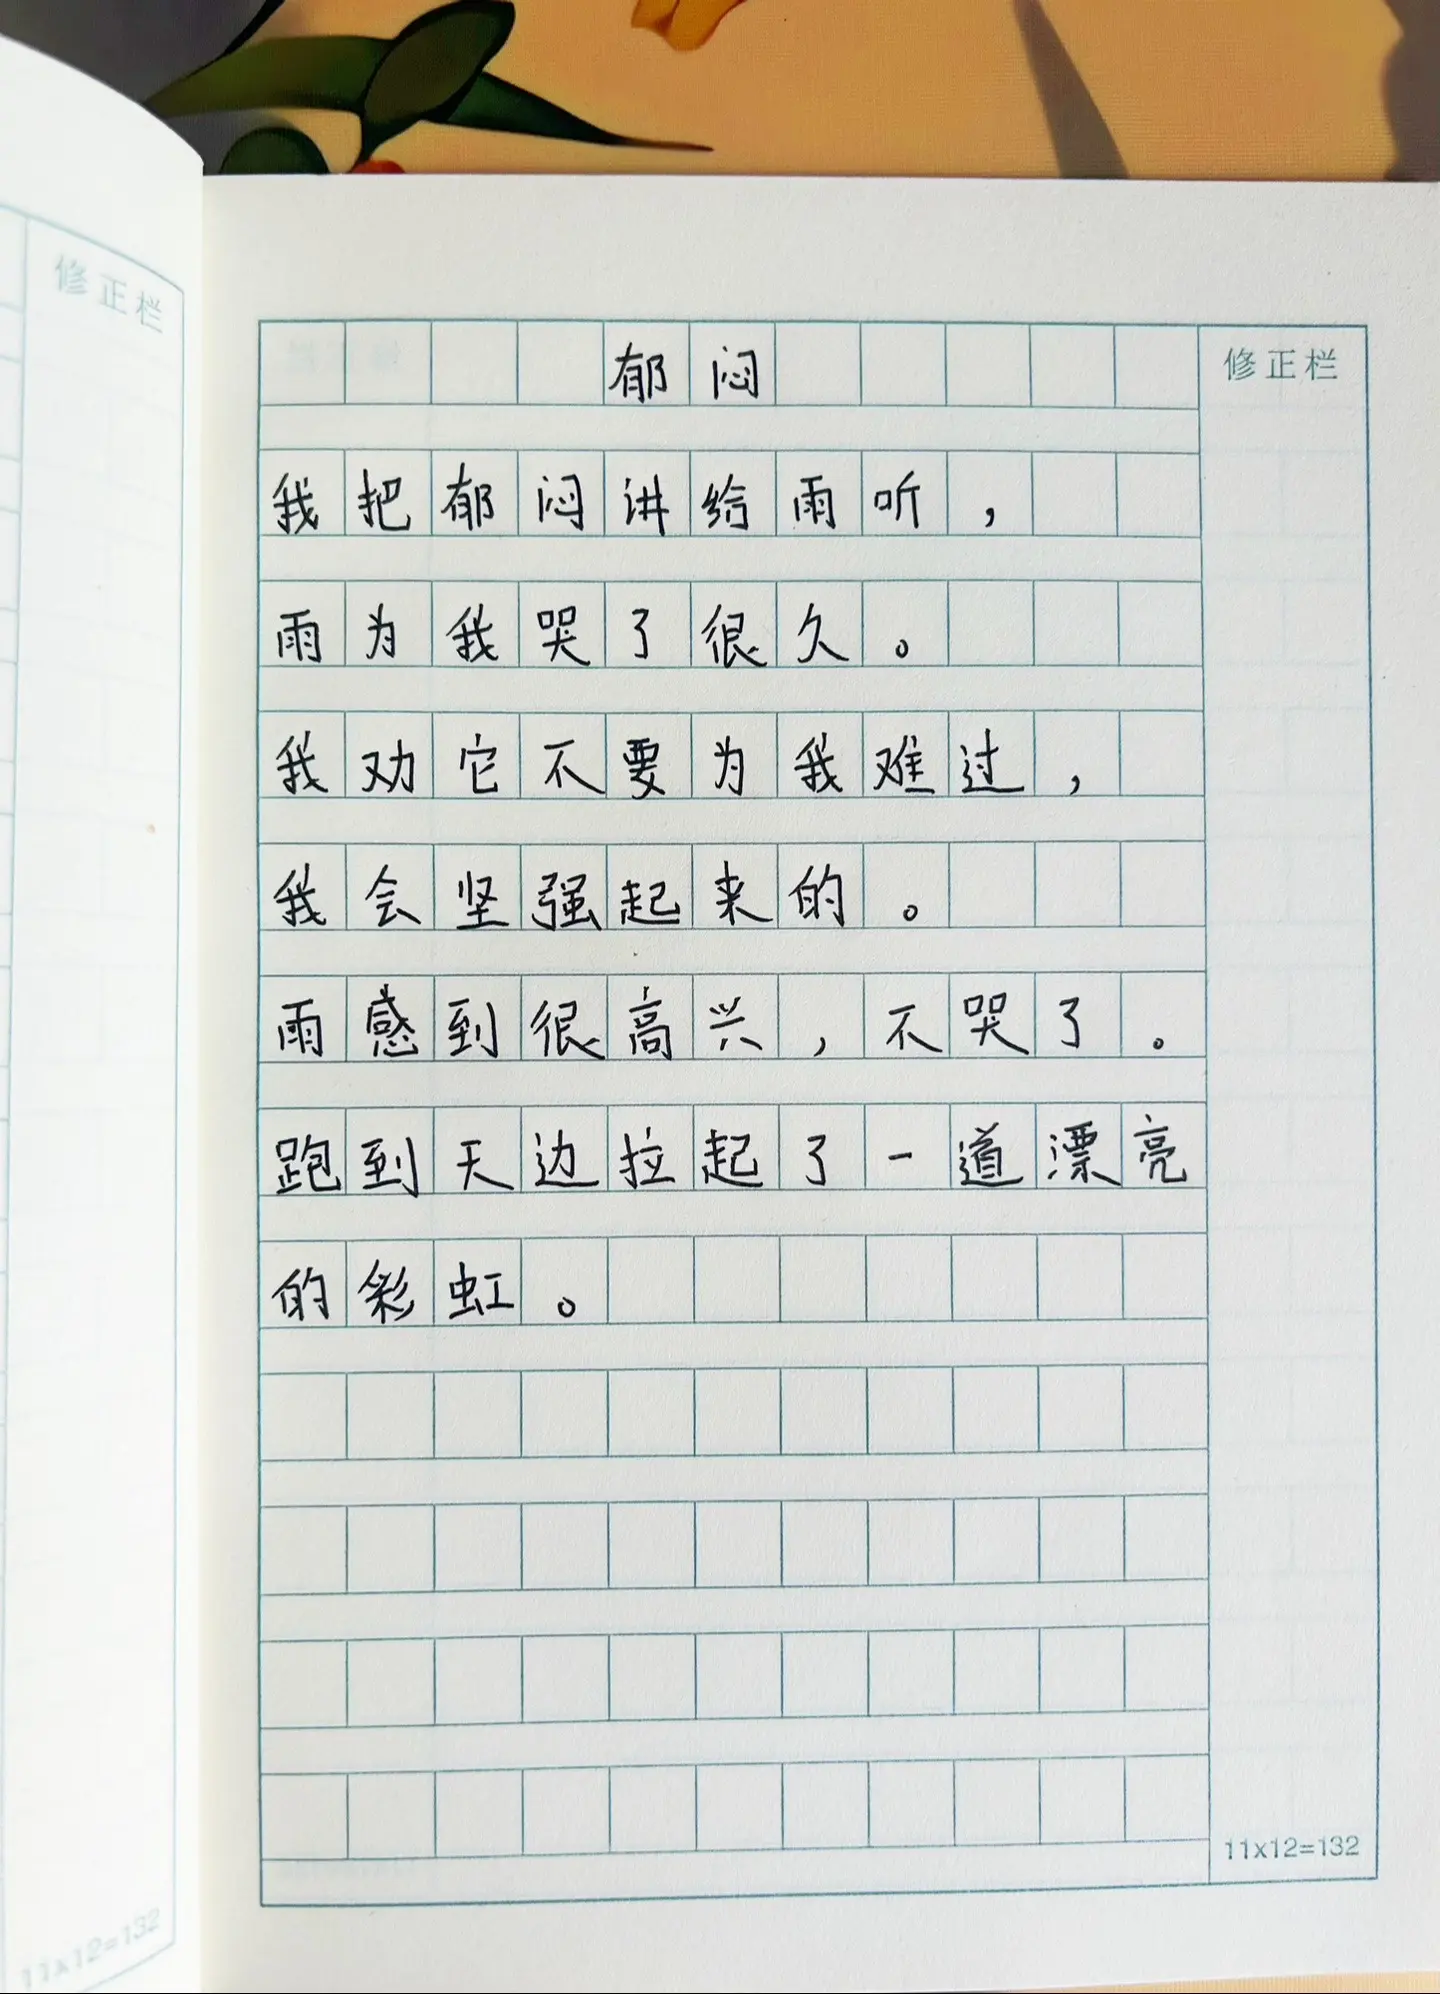 修正栏
11x12=132
郁闷
修正栏
我把郁闷讲给雨听，
雨为我哭了很久。
我劝它不要为我难过，
我会坚强起来的。
雨感到很高兴，不哭了。
跑到天边拉起了一道漂亮
的彩虹。
11x12=132